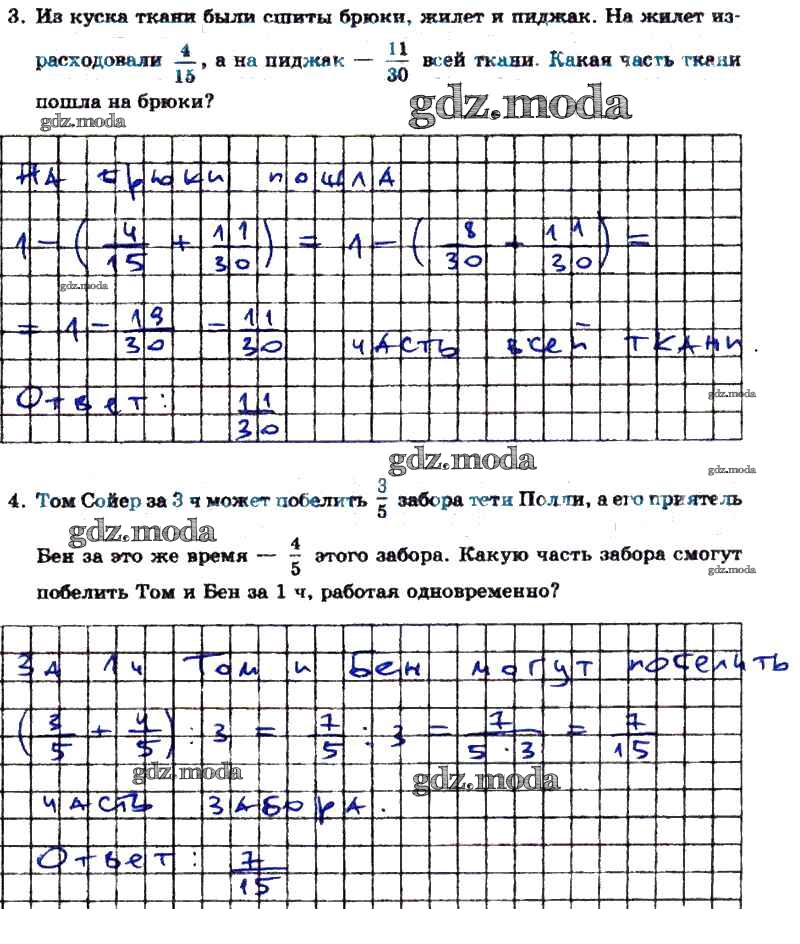 3. Из куска ткани были сшиты брюки, жилет и пиджак. На жилет из-
расходовали 4/15, а на пиджак — 11/30 всей ткани. Какая часть ткани
пошла на брюки?
gdz.moda
gdz.moda
На брюки пошла
1 - (4/15 + 11/30) = 1 - (8/30 + 11/30) =
gdz.moda
= 1 - 19/30 = 11/30 часть всей ткани.
Ответ: 11/30
gdz.moda
gdz.moda
gdz.moda
4. Том Сойер за 3 ч может побелить 3/5 забора тети Полли, а его приятель
gdz.moda
Бен за это же время — 4/5 этого забора. Какую часть забора смогут
gdz.moda
побелить Том и Бен за 1 ч, работая одновременно?
За 1ч Том и Бен могут побелить
(3/5 + 4/5) : 3 = 7/5 : 3 = 7/(5·3) = 7/15
gdz.moda
gdz.moda
часть забора.
Ответ: 7/15